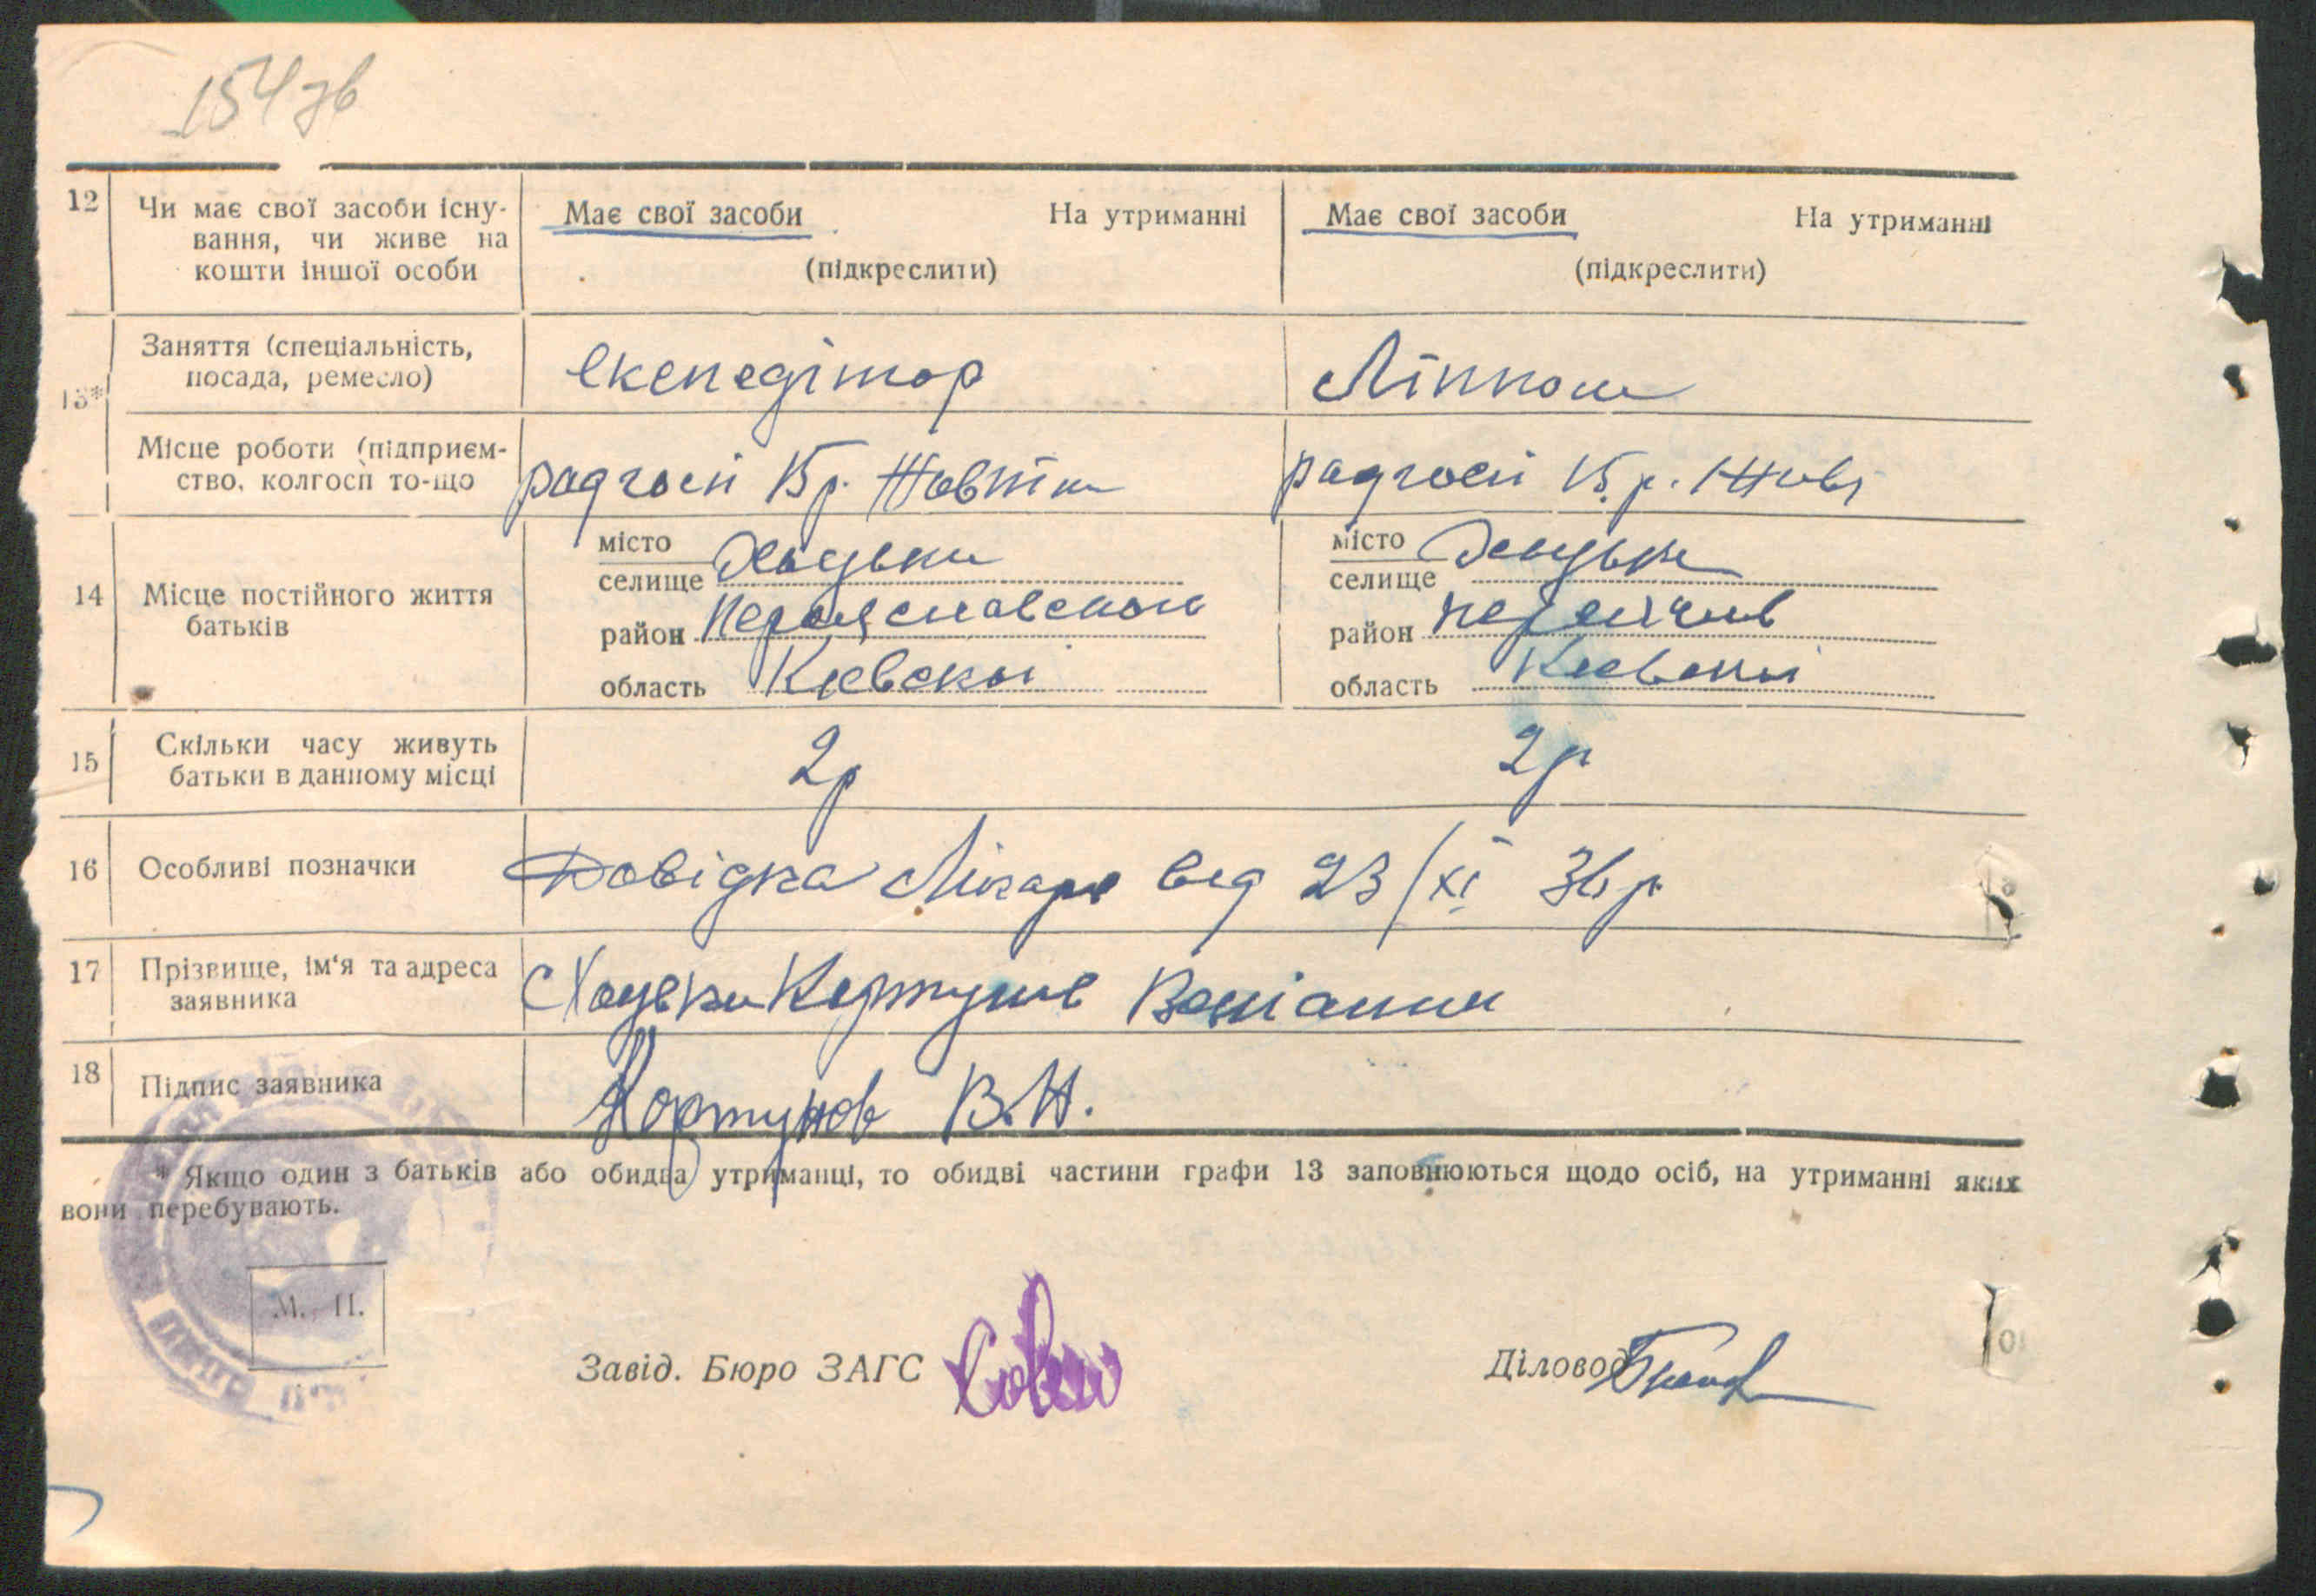 154 зв
12 Чи має свої засоби існу- Має свої засоби На утриманні Має свої засоби На утриманні
вання, чи живе на
кошти іншої особи (підкреслити) (підкреслити)
13* Заняття (спеціальність,
посада, ремесло) екепедітор
Місце роботи (підприєм-
ство, колгосп то-що радгосп 15 р. Жовтня радгосп 15 р. Жовт
14 Місце постійного життя
батьків
місто
селище Хоцьки
район Переяславскои
область Киевскоі
місто
селище Хоцьки
район
область Киевскоі
15 Скільки часу живуть
батьки в данному місці 2р 2р
16 Особливі позначки Довідка Лікаря від 23/XI 36 р
17 Прізвище, ім'я та адреса
заявника Хоцьки Кортунов
18 Підпис заявника Кортунов В.Н.
* Якщо один з батьків або обидва утриманці, то обидві частини графи 13 заповнюються щодо осіб, на утриманні яких
вони перебувають.
М. П.
Завід. Бюро ЗАГС Діловод